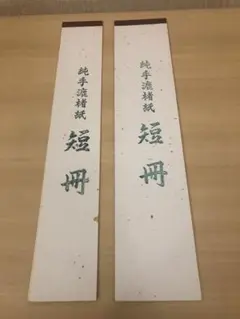 純手漉楮紙
短冊
純手漉楮紙
短冊